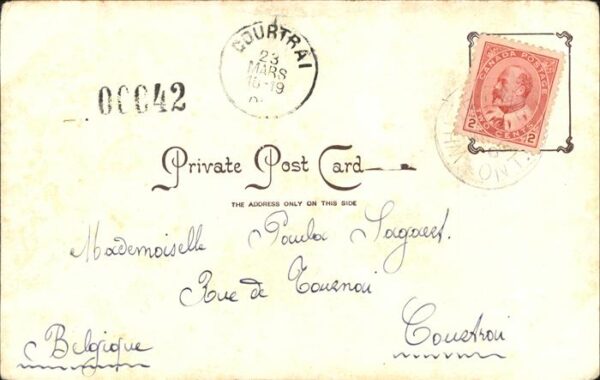 COURTRAI
23
MARS
16-19
00042
CANADA POSTAGE
2 TWO CENTS 2
ONT.
Private Post Card
THE ADDRESS ONLY ON THIS SIDE
Mademoiselle Paula
Rue de Tournai
Courtrai
Belgique